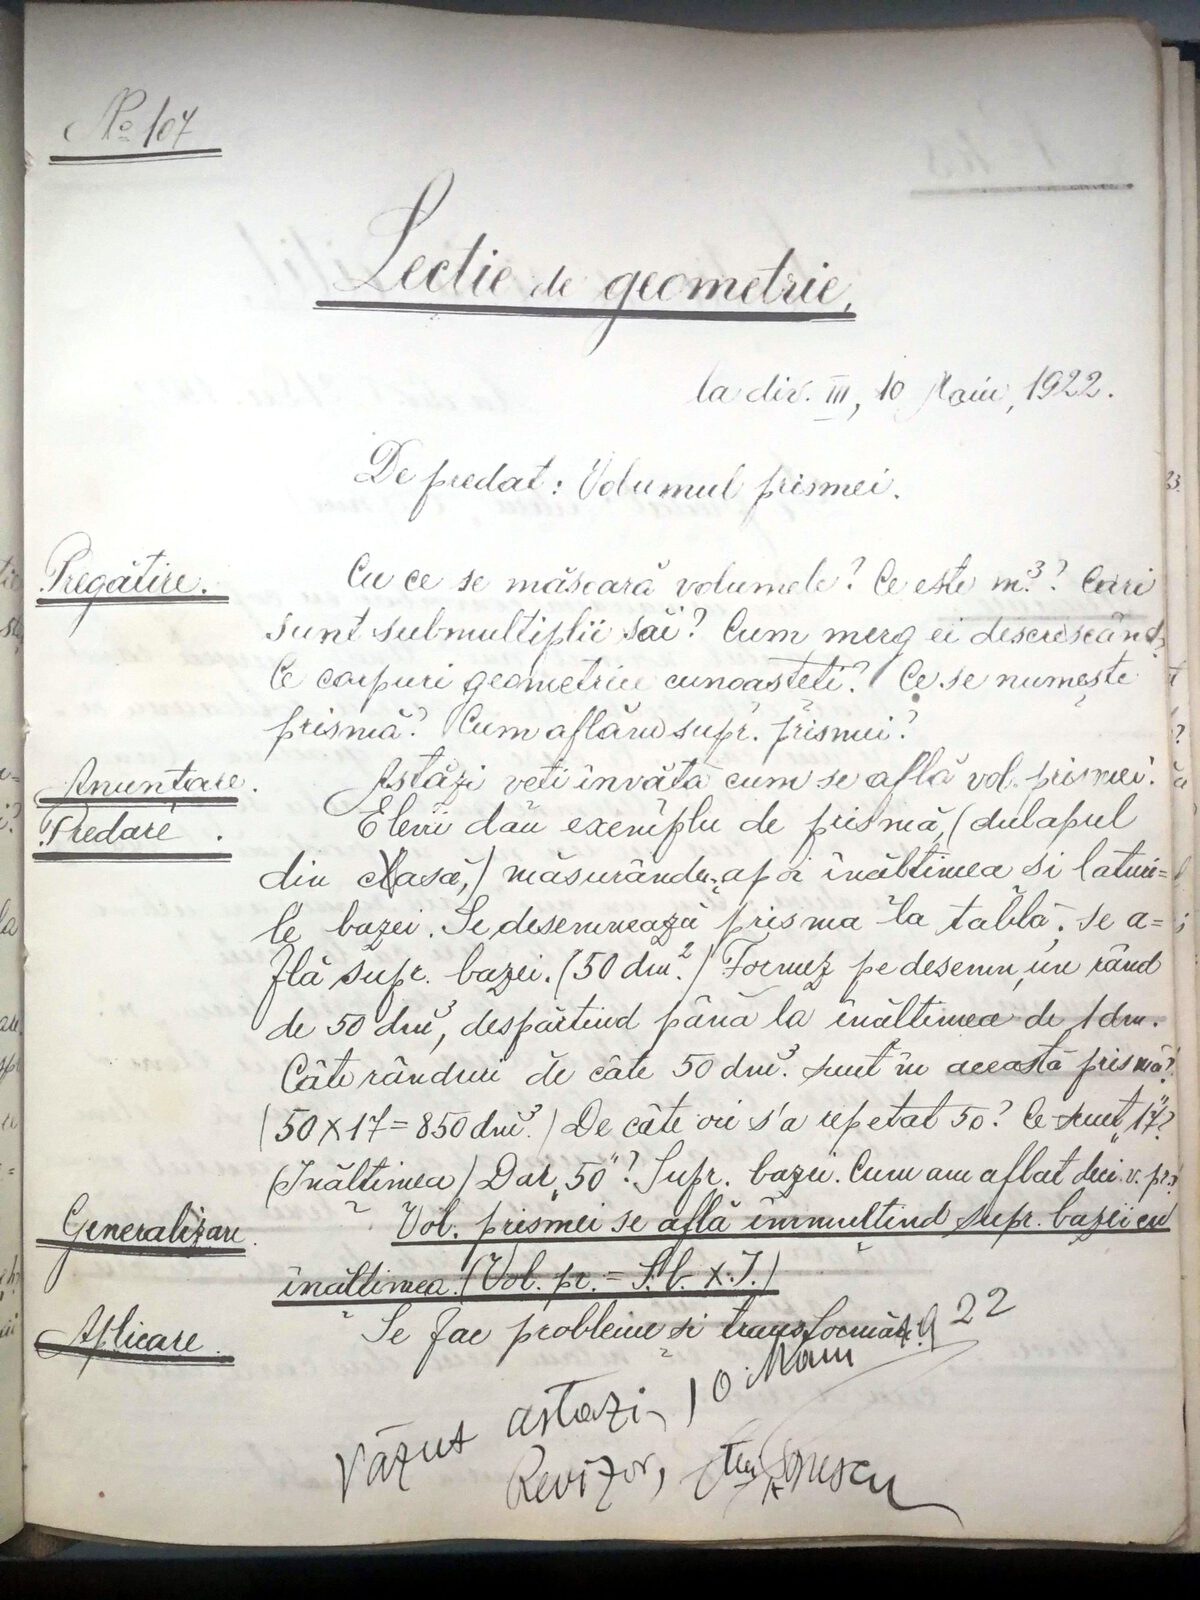 No 107
Lecție de geometrie,
la div. III, 10 Maiu, 1922.
De predat: Volumul prismei.
Pregătire. Cu ce se măsoară volumele? Ce este m.³? Cari
sunt submultiplii săi? Cum merg ei descrescând?
Ce corpuri geometrice cunoașteți? Ce se numește
prismă? Cum aflăm supr. prismei?
Anunțare. Astăzi veți învăța cum se află vol. prismei.
Predare. Elevii dău exemplu de prismă, (dulapul
din clasă,) măsurându-i apoi înălțimea și laturi=
le bazei. Se desemnează prisma la tablă, se a=
flă supr. bazei. (50 dm.²) Formez pe desemn, un rând
de 50 dm³, despărțind până la înălțimea de 1 dm.
Câte rânduri de câte 50 dm³. sunt în această prismă?
(50 x 17 = 850 dm³.) De câte ori s'a repetat 50? Ce sunt „17"?
(Înălțimea) Dar „50"? Supr. bazei. Cum am aflat deci v. pr.?
Generalizare. Vol. prismei se află înmulțind supr. bazei cu
înălțimea. (Vol. pr. = S. b. x. I.)
Aplicare. Se fac probleme și
Văzut astăzi, 10 Maiu 922
Revizor, Ionescu